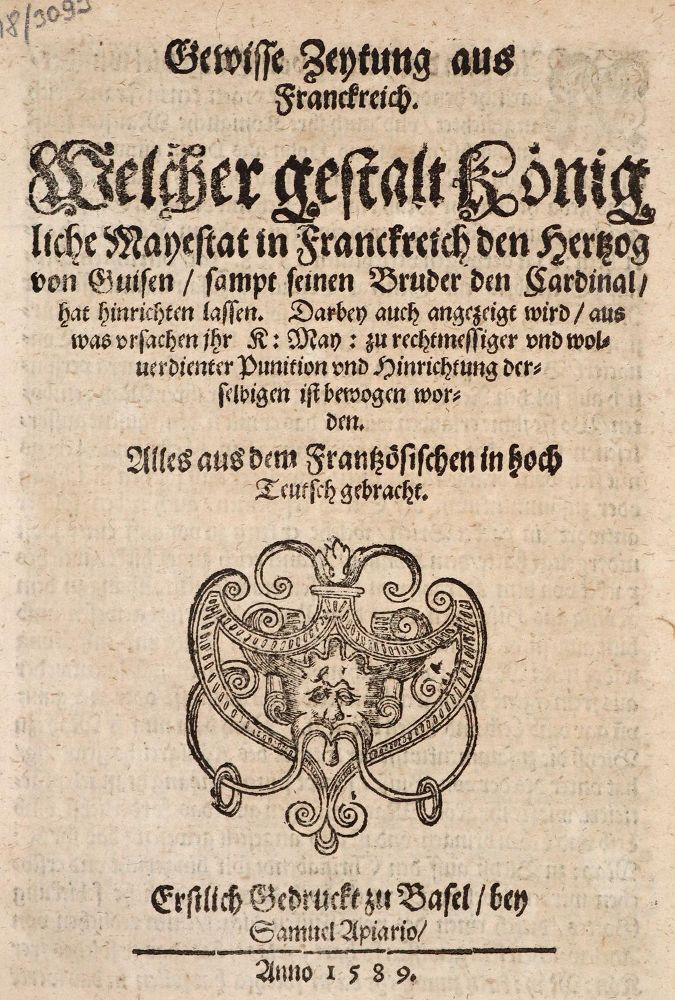 18/3093
Gewisse Zeytung aus
Franckreich.
Welcher gestalt König
liche Mayestat in Franckreich den Hertzog
von Guisen / sampt seinen Bruder den Cardinal /
hat hinrichten lassen. Darbey auch angezeigt wird / aus
was vrsachen jhr K: May: zu rechtmessiger vnd wol-
uerdienter Punition vnd Hinrichtung der-
selbigen ist bewogen wor-
den.
Alles aus dem Frantzösischen in hoch
Teutsch gebracht.
Erstlich Gedruckt zu Basel / bey
Samuel Apiario /
Anno 1589.